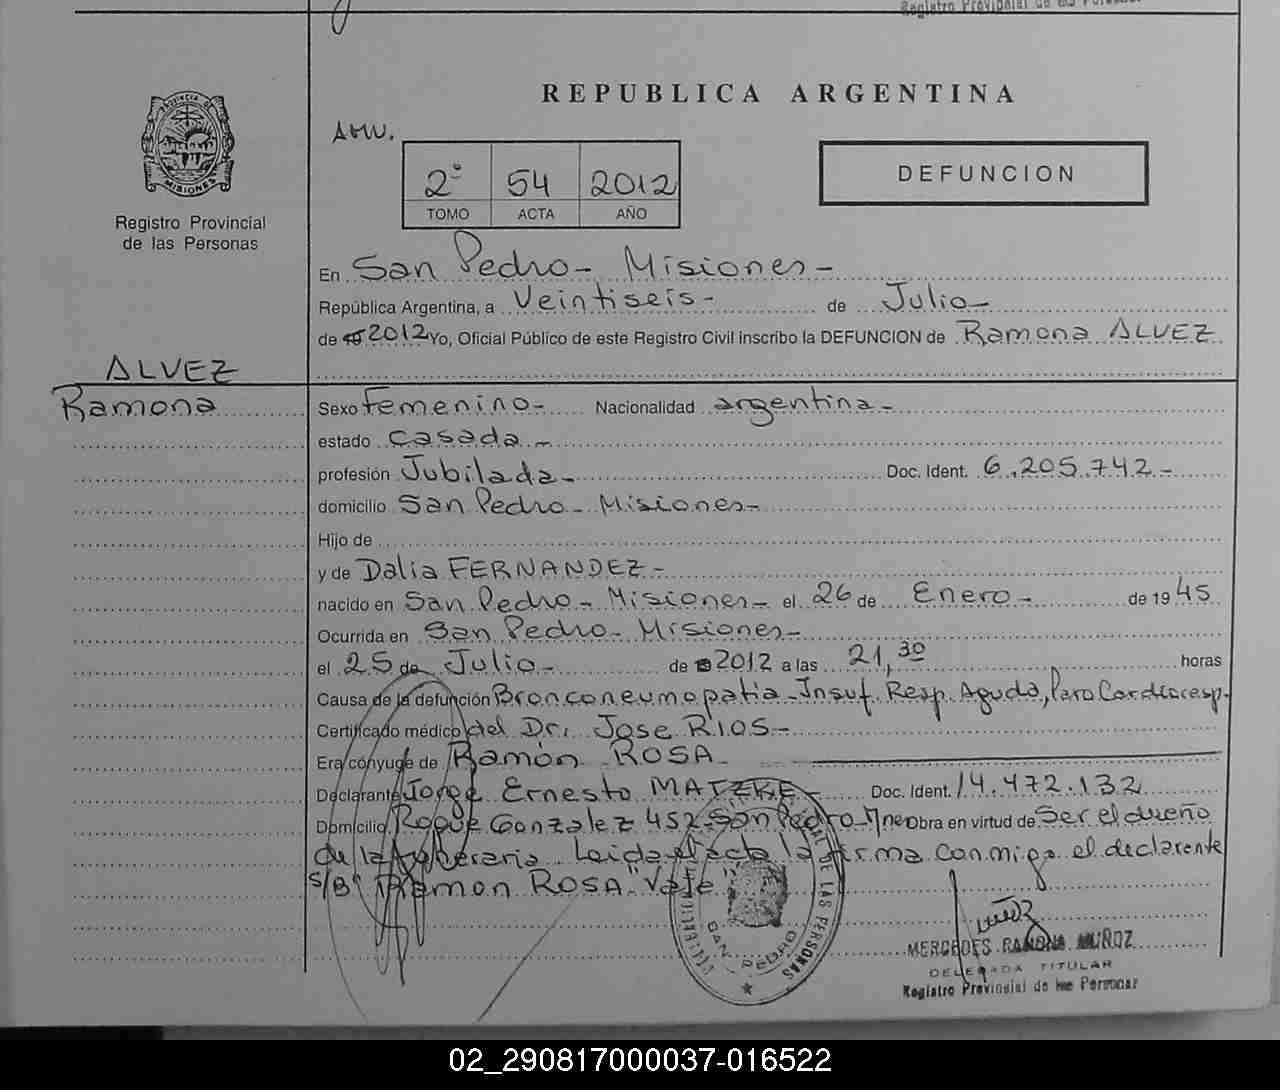 Registro Provincial de las Personas
REPUBLICA ARGENTINA
PROVINCIA DE
MISIONES
Registro Provincial
de las Personas
AMU.
2° 54 2012
TOMO ACTA AÑO
DEFUNCION
En San Pedro - Misiones -
República Argentina, a Veintiseis - de Julio -
de 2012 Yo, Oficial Público de este Registro Civil inscribo la DEFUNCION de Ramona ALVEZ
ALVEZ
Ramona
Sexo Femenino - Nacionalidad argentina -
estado casada -
profesión Jubilada - Doc. Ident. 6.205.742 -
domicilio San Pedro - Misiones -
Hijo de
y de Dalia FERNANDEZ -
nacido en San Pedro - Misiones - el 26 de Enero - de 1945
Ocurrida en San Pedro - Misiones -
el 25 de Julio - de 2012 a las 21,30 horas
Causa de la defunción Bronconeumopatia - Insuf. Resp. Aguda, Paro Cardioresp.
Certificado médico del Dr. Jose RIOS -
Era cónyuge de Ramón ROSA
Declarante Jorge Ernesto MATZKE - Doc. Ident. 14.472.132
Domicilio Roque Gonzalez 452 San Pedro - Mnes Obra en virtud de Ser el dueño
de la funeraria. Leida el acta la firma conmigo el declarente
S/B "Ramon ROSA" Vale"
SAN PEDRO
DE LAS PERSONAS
MERCEDES RAMONA MUÑOZ
DELEGADA TITULAR
Registro Provincial de las Personas
02_290817000037-016522